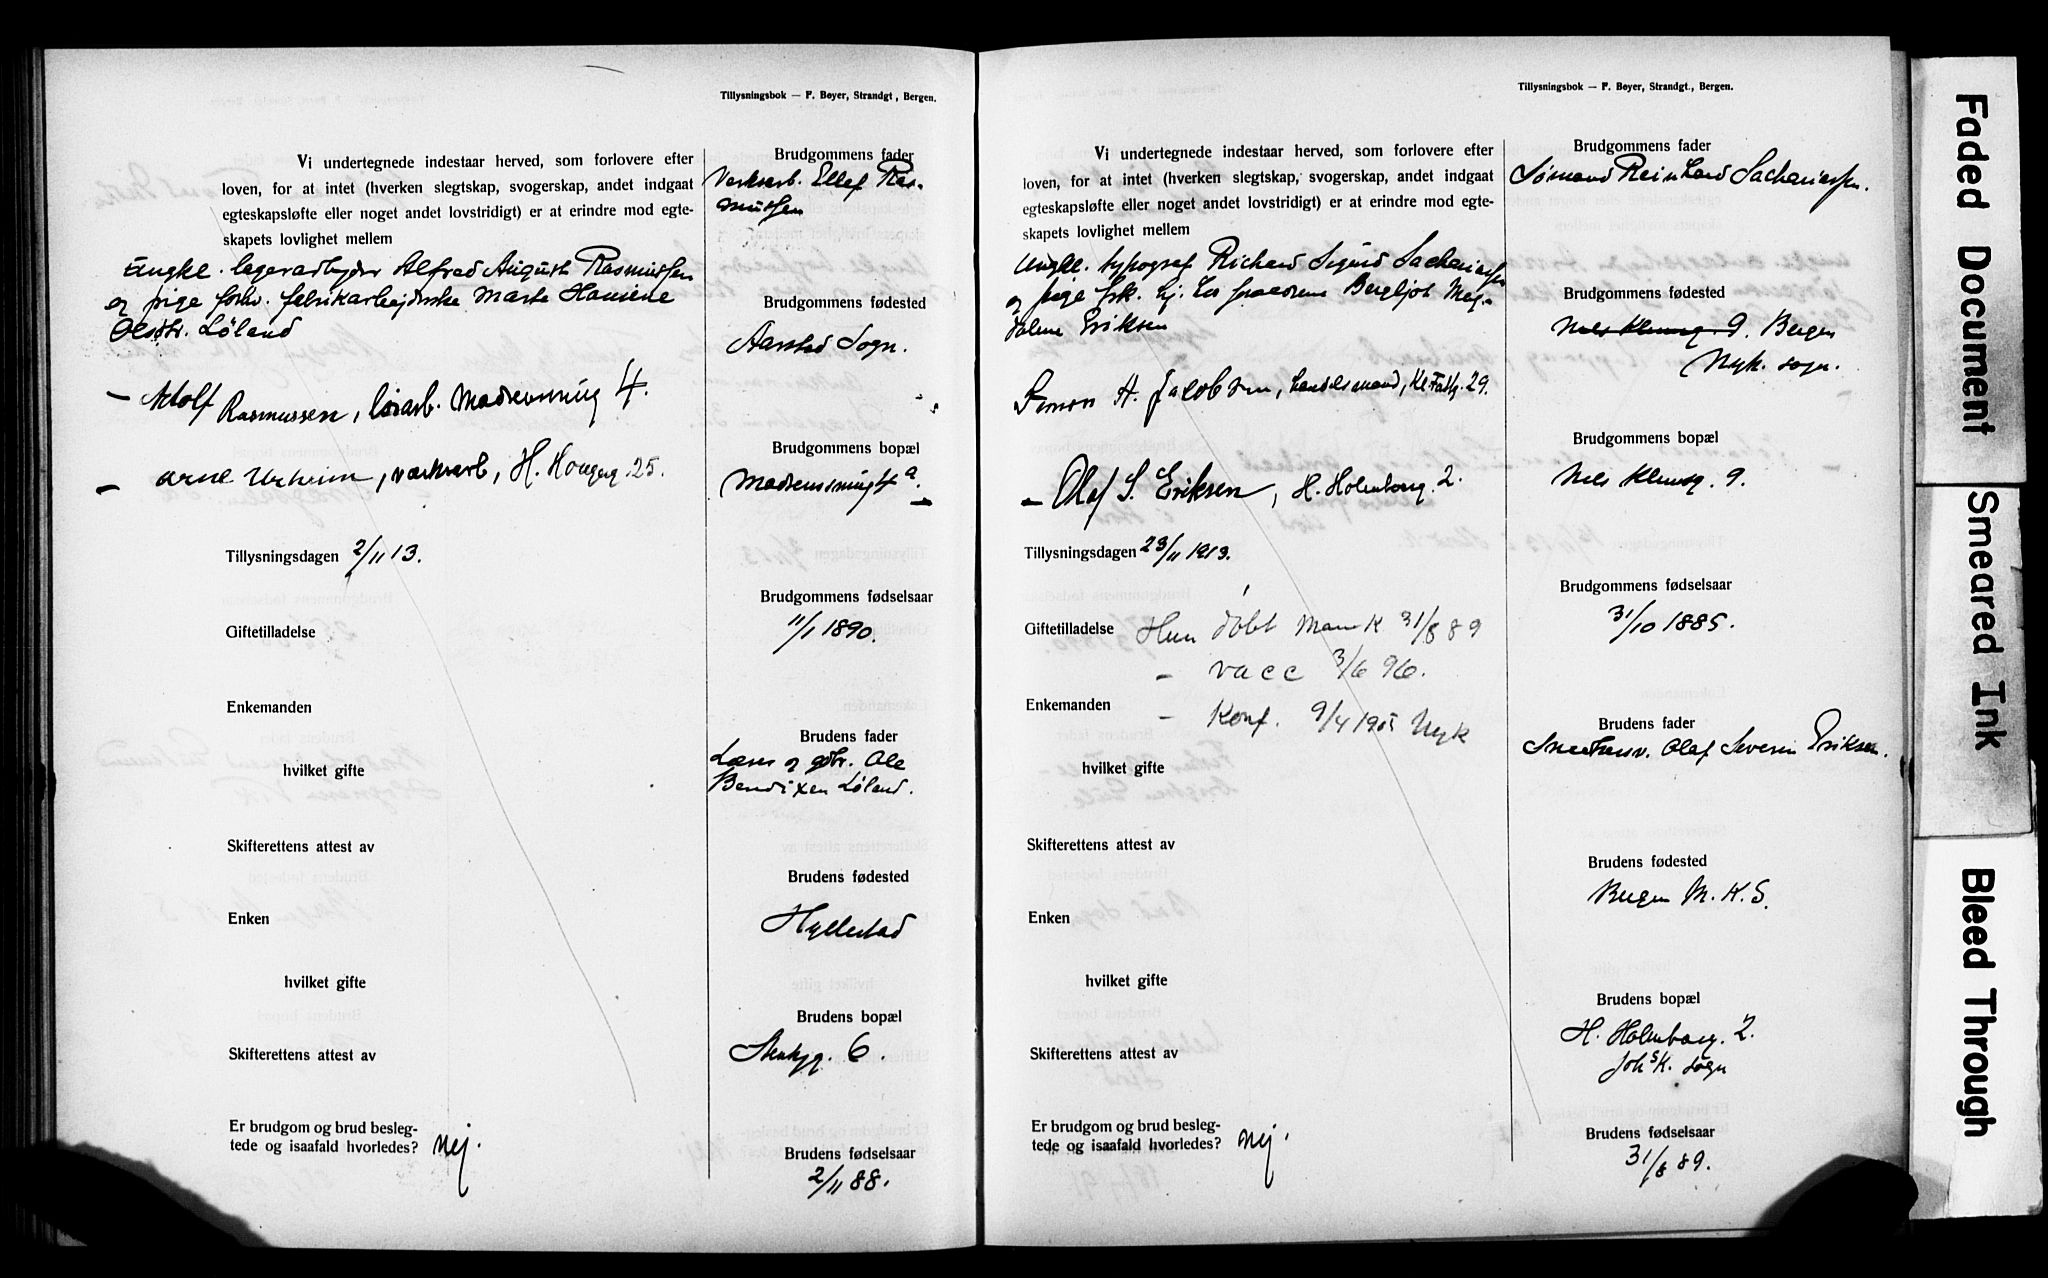 Tillysningsbok — F. Beyer, Strandgt, Bergen.
Vi undertegnede indestaar herved, som forlovere efter
loven, for at intet (hverken slegtskap, svogerskap, andet indgaat
egteskapsløfte eller noget andet lovstridigt) er at erindre mod egte-
skapets lovlighet mellem
Ungke. lagerarbeider Alfred August Rasmussen
og pige forhv. fabrikarbeiderske Marta Hansine
Olsdtr. Løland
— Adolf Rasmussen, Madsensmug 4.
— Arne Urheim, verksarb, H. Haugeg. 25.
Tillysningsdagen 2/11 13.
Giftetilladelse
Enkemanden
hvilket gifte
Skifterettens attest av
Enken
hvilket gifte
Skifterettens attest av
Er brudgom og brud besleg-
tede og isaafald hvorledes? Nej.
Brudgommens fader
Verksarb. Ellef Ras-
mussen
Brudgommens fødested
Aarstad Sogn.
Brudgommens bopæl
Madsensmug 4 a.
Brudgommens fødselsaar
11/1 1890.
Brudens fader
Lærer og gbr. Ole
Bendixen Løland.
Brudens fødested
Hyllestad
Brudens bopæl
6.
Brudens fødselsaar
2/11 88.
Tillysningsbok — F. Beyer, Strandgt., Bergen.
Vi undertegnede indestaar herved, som forlovere efter
loven, for at intet (hverken slegtskap, svogerskap, andet indgaat
egteskapsløfte eller noget andet lovstridigt) er at erindre mod egte-
skapets lovlighet mellem
Ungke. typograf Richard Sigurd Sachariassen
og pige frk. hj. hos foraeldrene Bergljot Mag-
dalene Eriksen
Simon A. Jacobsen, handelsmand, 29.
— Olaf S. Eriksen, H. Holenbarg. 2.
Tillysningsdagen 23/11 1913.
Giftetilladelse Hun døbt Mar K 31/8 89
— vacc 3/6 96.
Enkemanden — Konf. 9/4 1905 Nyk
hvilket gifte
Skifterettens attest av
Enken
hvilket gifte
Skifterettens attest av
Er brudgom og brud besleg-
tede og isaafald hvorledes? Nej.
Brudgommens fader
Sømand Reinhard Sachariassen.
Brudgommens fødested
Nels Klemsg 9. Bergen
Nyk. sogn.
Brudgommens bopæl
Nels Klemsg. 9.
Brudgommens fødselsaar
31/10 1885.
Brudens fader
Olaf Severin Eriksen.
Brudens fødested
Bergen M. K. S.
Brudens bopæl
H. Holenbarg. 2.
Joh s K. sogn
Brudens fødselsaar
31/8 89.
Faded Document
Smeared Ink
Bleed Through